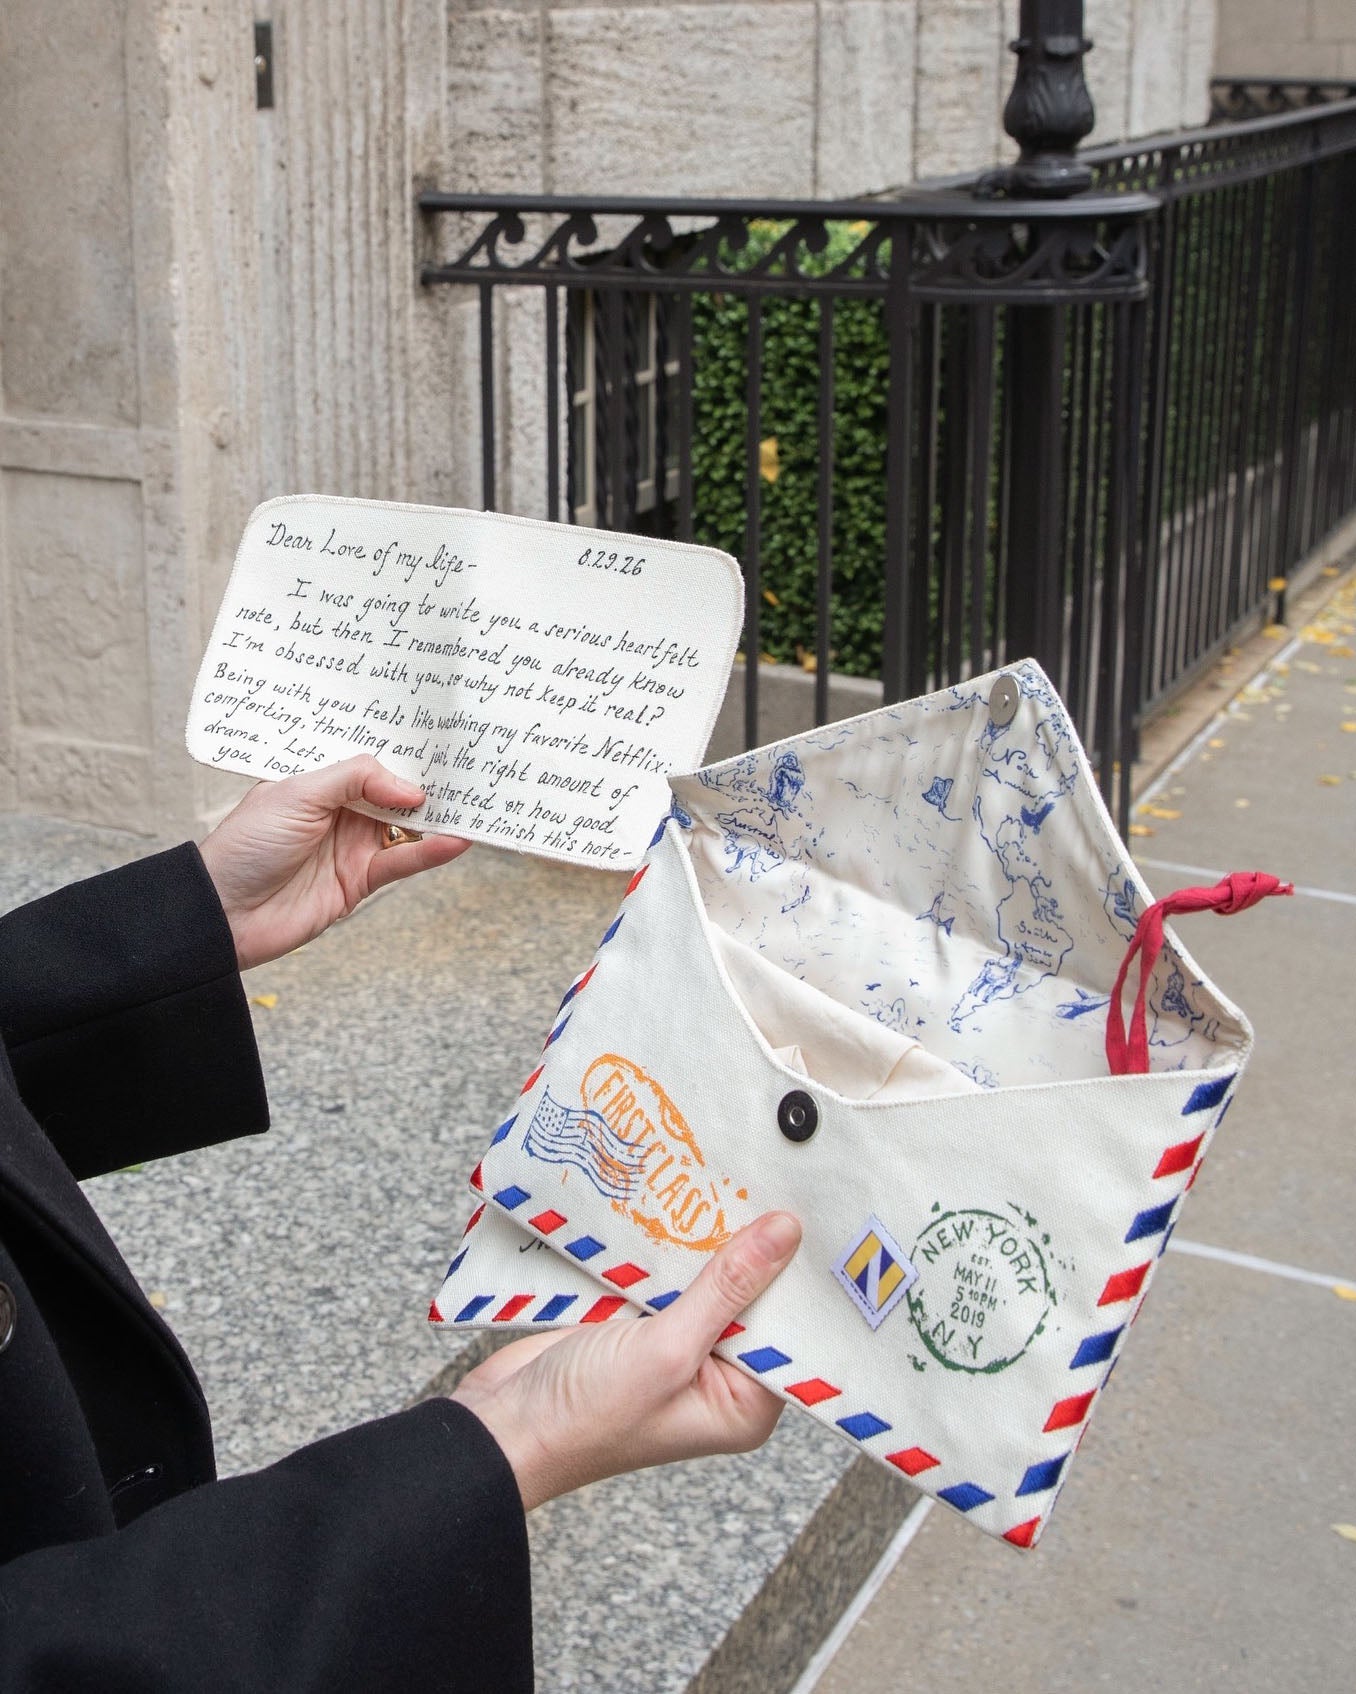 Dear Love of my life- 8.29.26
I was going to write you a serious heartfelt
note, but then I remembered you already know
I'm obsessed with you, so why not keep it real?
Being with you feels like watching my favorite Netflix:
comforting, thrilling and just the right amount of
drama. Lets get started on how good
you look able to finish this note-
Australia
North
America
South
America
FIRST CLASS
N
NEW YORK
EST.
MAY 11
5 10PM
2019
N.Y